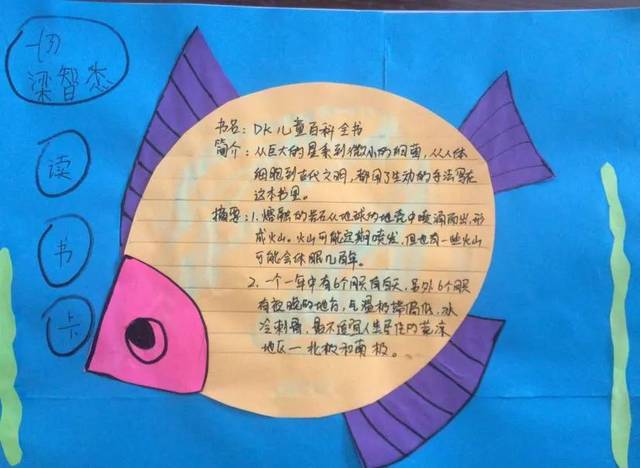 一(7)
梁智杰
读
书
卡
书名：DK儿童百科全书
简介：从巨大的星系到微小的细菌，从人体
细胞到古代文明，都用了生动的手法写在
这本书里。
摘要：1.熔融的岩石从地球的地壳中喷涌而出，形
成火山。火山可能定期喷发，但也有一些火山
可能会休眠几百年。
2.一个一年中有6个月只有白天，另外6个月只
有夜晚的地方，气温极端低，冰
冷刺骨，最不适宜人生居住的荒凉
地区一北极和南极。